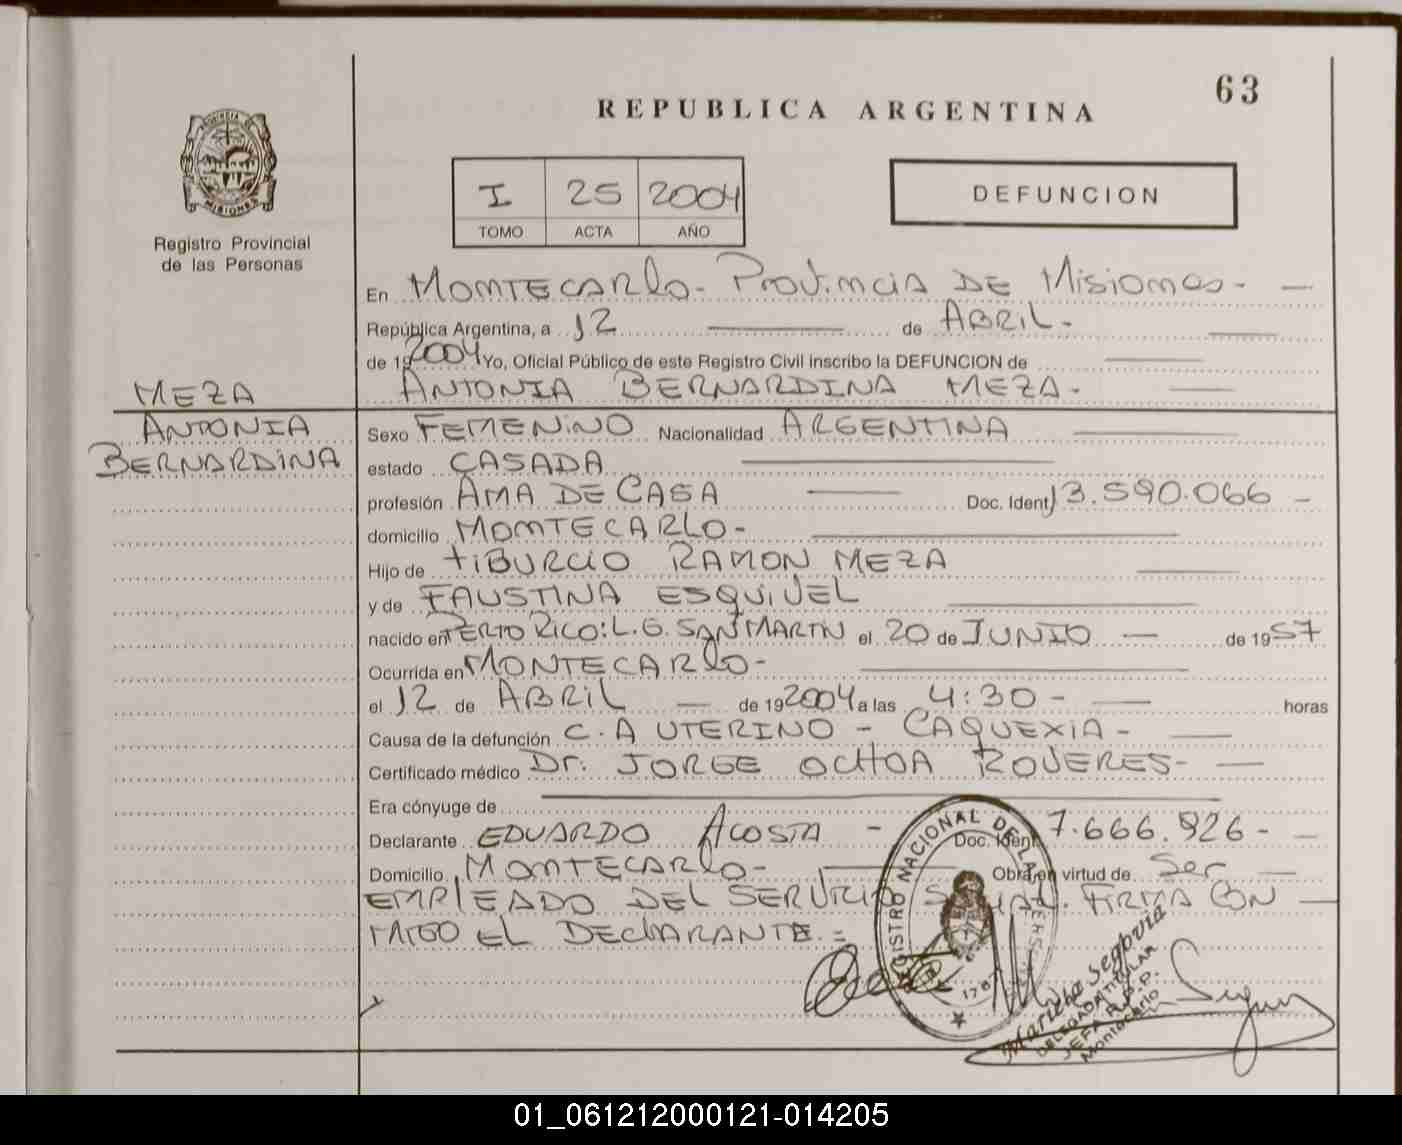 63
REPUBLICA ARGENTINA
PROVINCIA DE
MISIONES
Registro Provincial
de las Personas
I 25 2004
TOMO ACTA AÑO
DEFUNCION
En MONTECARLO - Provincia DE Misiones -
República Argentina, a 12 de ABRIL -
de 19 2004 Yo, Oficial Público de este Registro Civil inscribo la DEFUNCION de
ANTONIA BERNARDINA MEZA -
MEZA
ANTONIA
BERNARDINA
Sexo FEMENINO Nacionalidad ARGENTINA
estado CASADA
profesión AMA DE CASA Doc. Ident 13.590.066 -
domicilio MONTECARLO -
Hijo de TIBURCIO RAMON MEZA
y de FAUSTINA ESQUIVEL
nacido en PERTO RICO: L.G. SAN MARTIN el 20 de JUNIO de 1957
Ocurrida en MONTECARLO -
el 12 de ABRIL de 19 2004 a las 4:30 - horas
Causa de la defunción C. A UTERINO - CAQUEXIA -
Certificado médico Dr. JORGE OCHOA ROVERES -
Era cónyuge de
Declarante EDUARDO ACOSTA - Doc. Ident 7.666.926 -
Domicilio MONTECARLO - Obra en virtud de Ser
EMPLEADO DEL SERVICIO FIRMA CON
MIGO EL DECLARANTE. =
REGISTRO NACIONAL DE LAS PERSONAS
Mariela Segovia
DELEGADA TITULAR
JEFA R.P.P.
Montecarlo
01_061212000121-014205